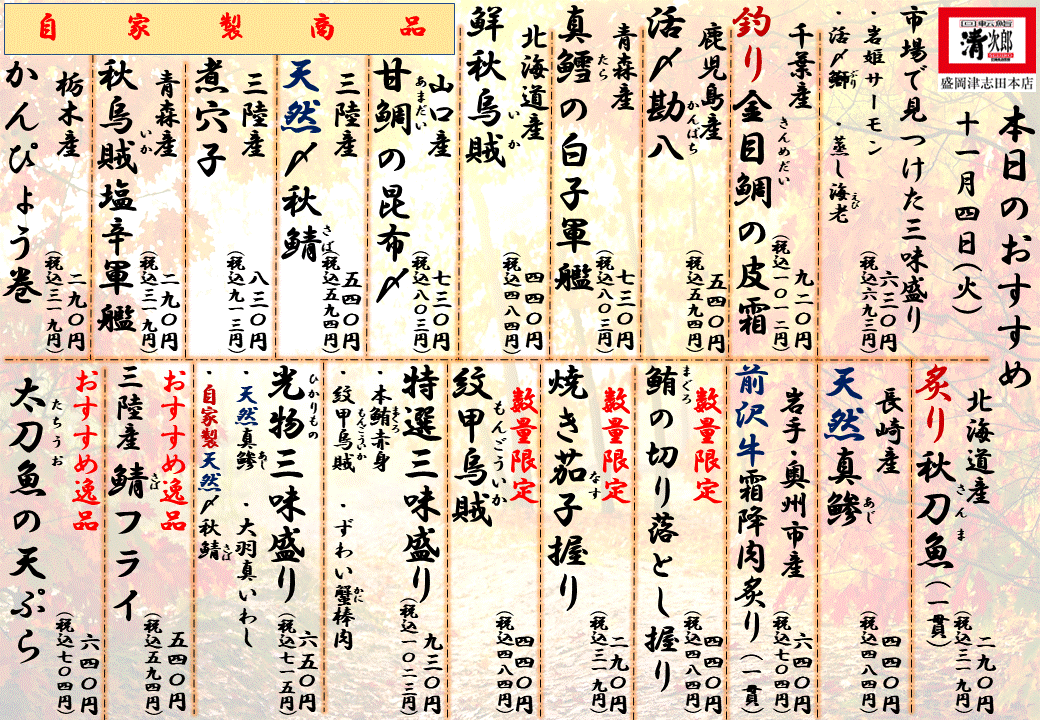 回転鮨
清次郎
盛岡津志田本店
本日のおすすめ
十一月四日(火)
市場で見つけた三味盛り
・岩姫サーモン
・活〆鰤 ・蒸し海老
ぶり
えび
六三〇円
(税込六九三円)
千葉産
釣り金目鯛の皮霜
きんめだい
九二〇円
(税込一〇一二円)
鹿児島産
活〆勘八
かんぱち
五四〇円
(税込五九四円)
青森産
真鱈の白子軍艦
たら
七三〇円
(税込八〇三円)
北海道産
鮮秋烏賊
いか
四四〇円
(税込四八四円)
自家製商品
山口産
甘鯛の昆布〆
あまだい
七三〇円
(税込八〇三円)
三陸産
天然〆秋鯖
さば
五四〇円
(税込五九四円)
三陸産
煮穴子
八三〇円
(税込九一三円)
青森産
秋烏賊塩辛軍艦
いか
二九〇円
(税込三一九円)
栃木産
かんぴょう巻
二九〇円
(税込三一九円)
北海道産
炙り秋刀魚(一貫)
さんま
二九〇円
(税込三一九円)
長崎産
天然真鯵
あじ
四四〇円
(税込四八四円)
岩手・奥州市産
前沢牛霜降肉炙り(一貫)
六四〇円
(税込七〇四円)
数量限定
鮪の切り落とし握り
まぐろ
四四〇円
(税込四八四円)
数量限定
焼き茄子握り
なす
二九〇円
(税込三一九円)
数量限定
紋甲烏賊
もんごういか
四四〇円
(税込四八四円)
特選三味盛り
・本鮪赤身
まぐろ
・紋甲烏賊 ・ずわい蟹棒肉
もんごういか
かに
九三〇円
(税込一〇二三円)
光物三味盛り
ひかりもの
・天然真鯵 ・大羽真いわし
あじ
・自家製天然〆秋鯖
さば
六五〇円
(税込七一五円)
おすすめ逸品
三陸産 鯖フライ
さば
五四〇円
(税込五九四円)
おすすめ逸品
太刀魚の天ぷら
たちうお
六四〇円
(税込七〇四円)